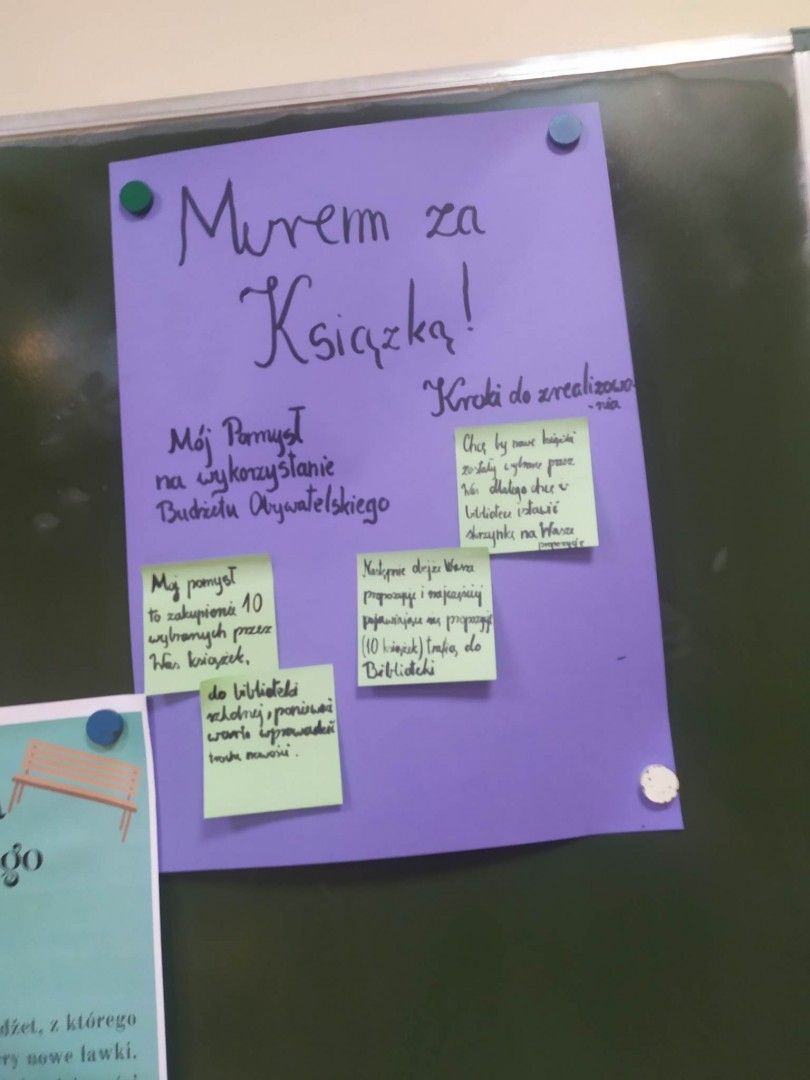 Murem za
Książką!
Mój Pomysł
na wykorzystanie
Budżetu Obywatelskiego
Mój pomysł
to zakupienie 10
wybranych przez
Was książek,
do biblioteki
szkolnej, ponieważ
warto wprowadzić
trochę nowości.
Kroki do zrealizowa
-nia
Chcę by nowe książki
zostały wybrane przez
Was dlatego chcę w
bibliotece ustawić
skrzynkę na Wasze
propozycje
Następnie obejżę Wasze
propozycje i najczęściej
pojawiające się propozycje
(10 książek) trafią do
Biblioteki
go
dżet, z którego
ry nowe ławki.